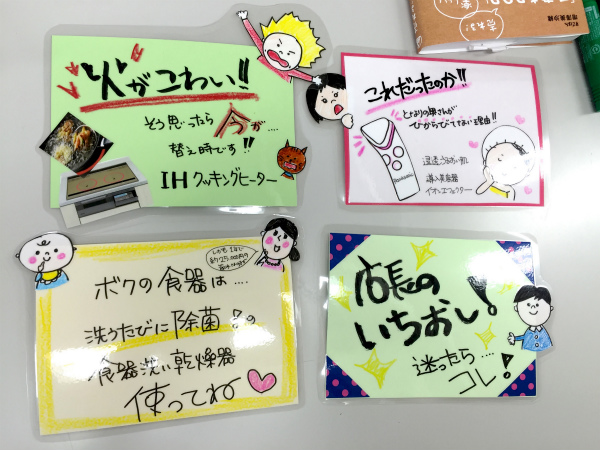 火がこわい!!
そう思ったら今が…
替え時です!!
IHクッキングヒーター
これだったのか!!
となりの奥さんが
ひからびてない理由!!
導入美容器
イオンエフェクター
しかも1年で
約25,000円の
ボクの食器は....
洗うたびに除菌!の
食器洗い乾燥器
使ってね
店長の
いちおし!
迷ったら...
コレ!